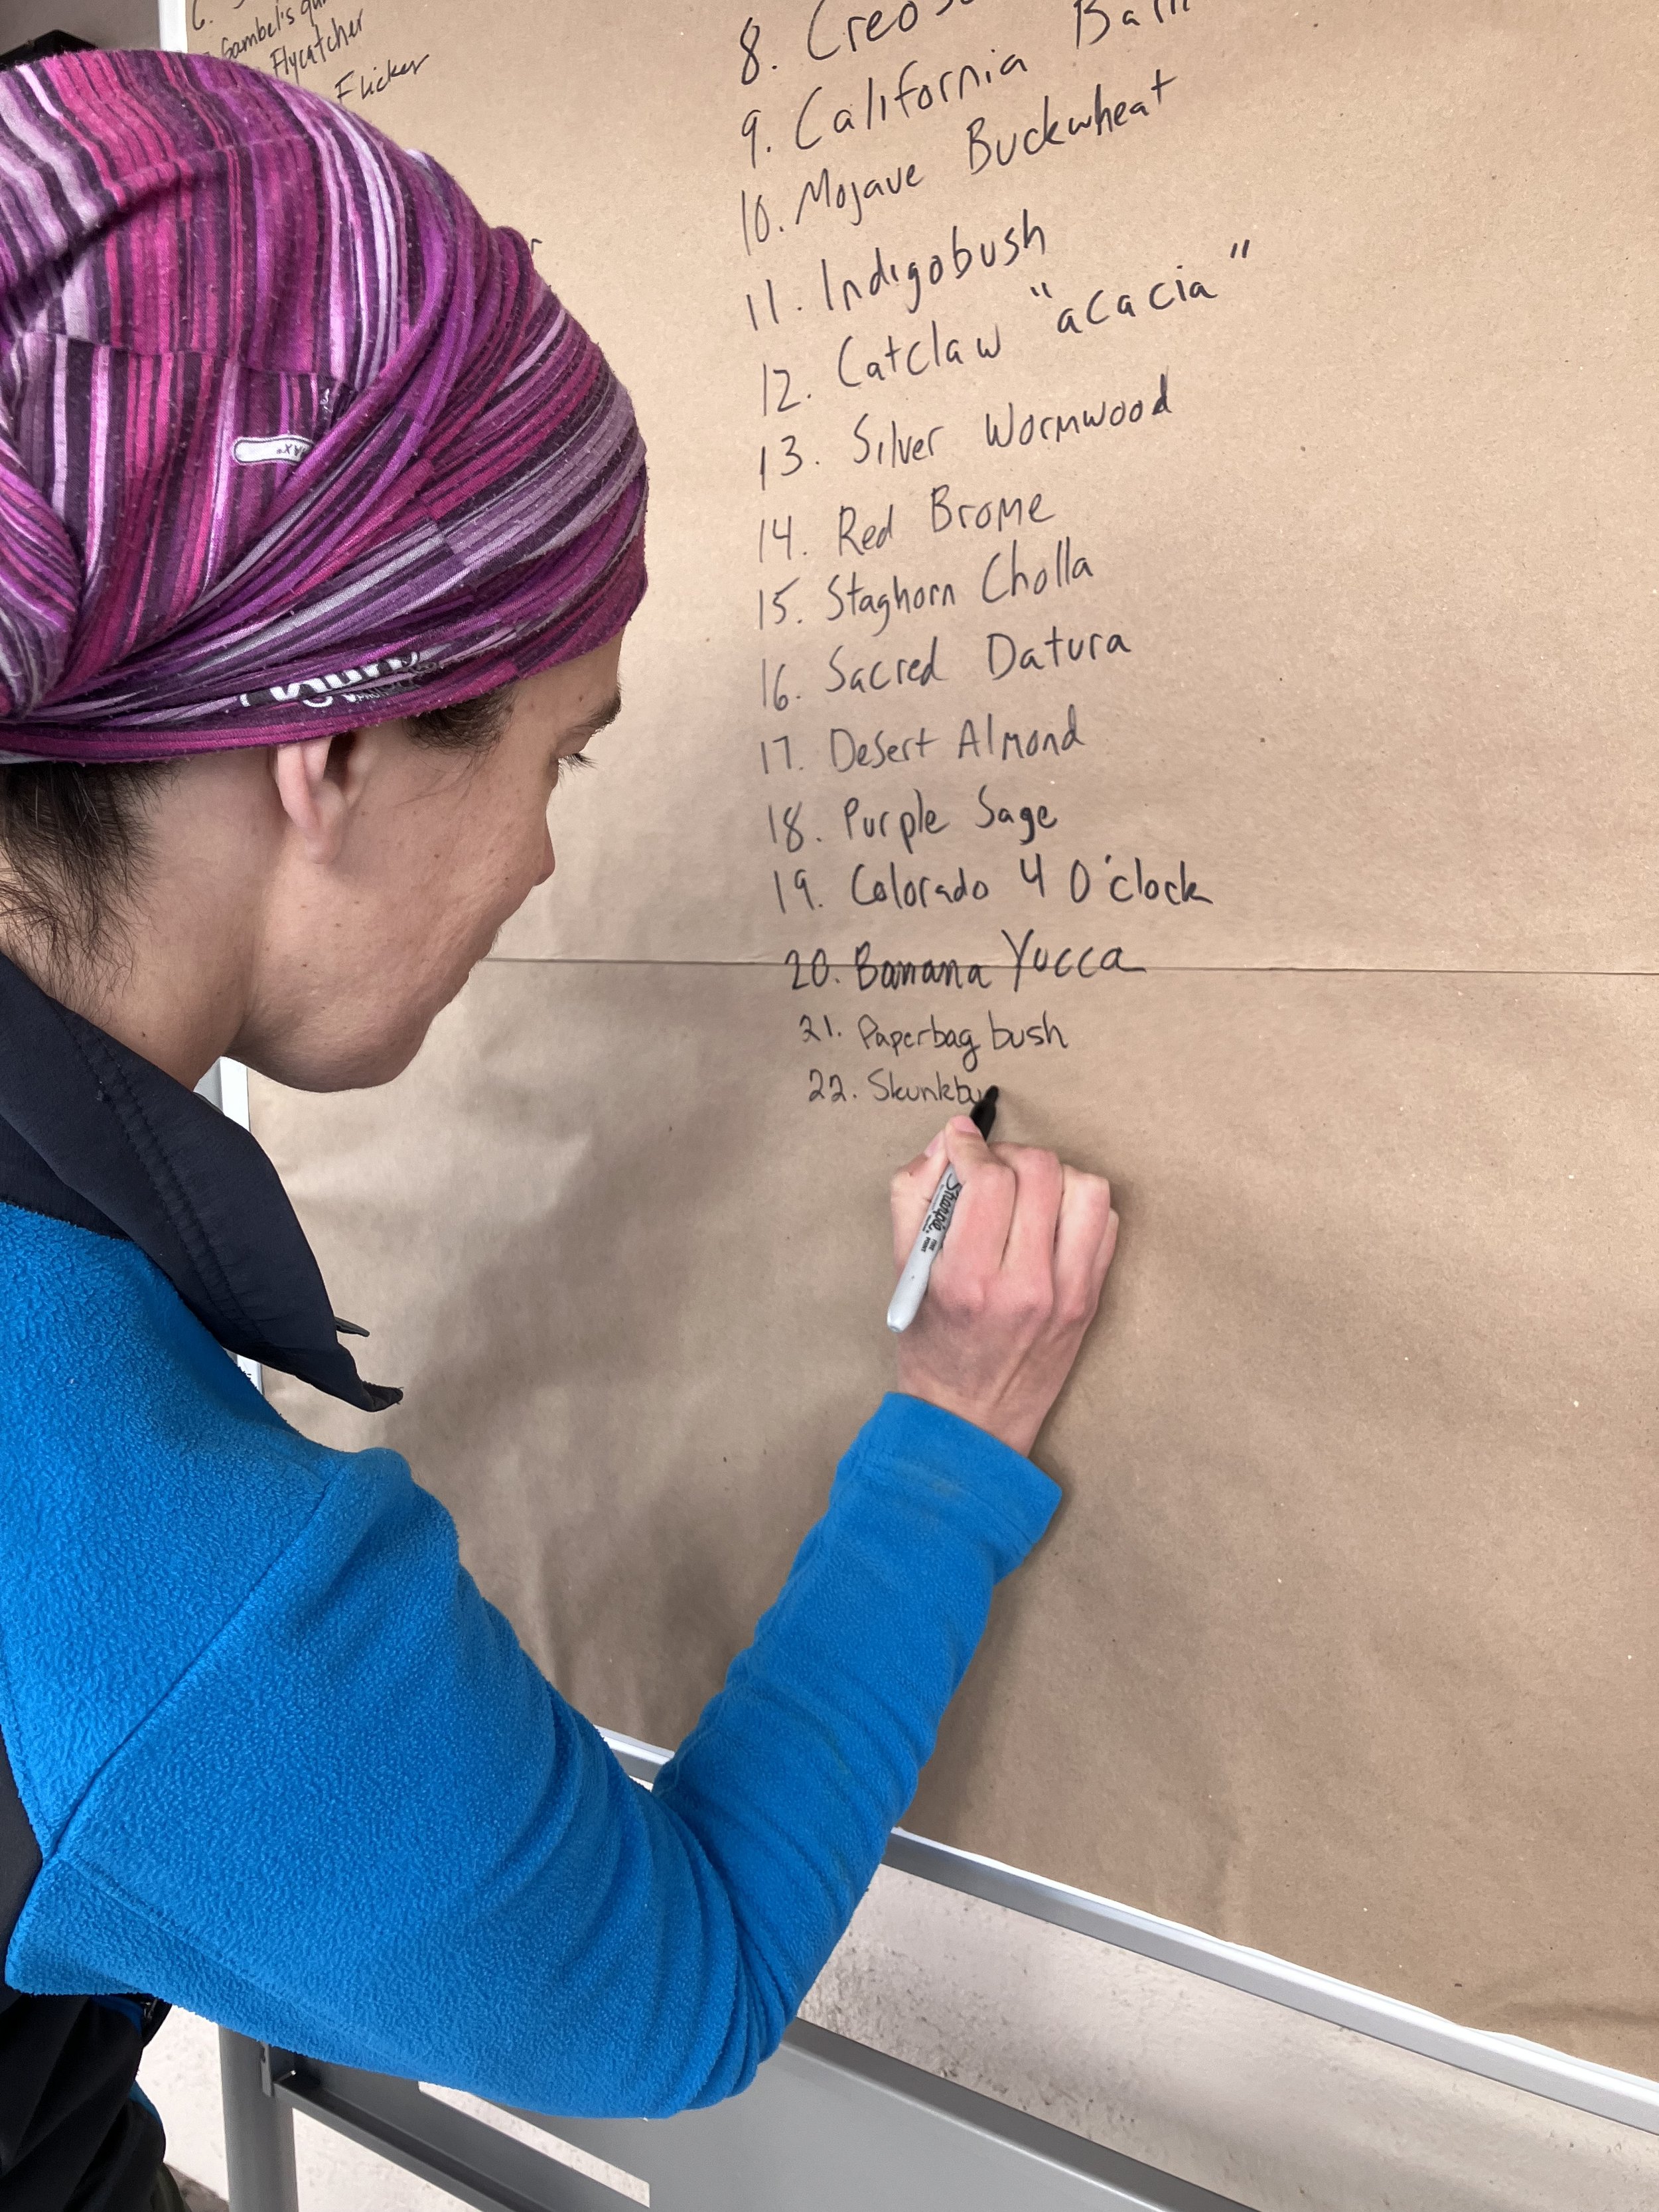 6.
Gambel's
Flycatcher
Flicker
8.
9. California
10. Mojave Buckwheat
11. Indigobush
12. Catclaw "acacia"
13. Silver Wormwood
14. Red Brome
15. Staghorn Cholla
16. Sacred Datura
17. Desert Almond
18. Purple Sage
19. Colorado 4 O'clock
20. Banana Yucca
21. Paperbag bush
22. Skunkbu
Sharpie